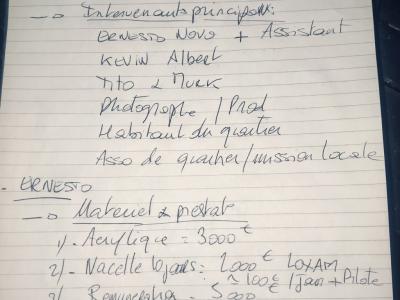 → Intervenants principaux:
ERNESTO NOVO + Assistant
KEVIN Albert
TITO & MURK
Photographe / Prod
Habitant du quartier
Asso de quartier/mission locale
- ERNESTO
→ Materiel & prestat°
1)- Acrylique = 3000€
2)- Nacelle 10 jours: 2000€ LOXAM
≈ 100€ / Jour + Pilote
3) Remuneration = 5000